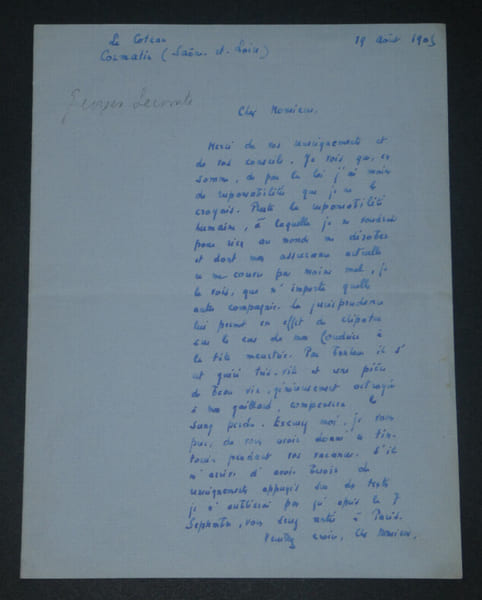 Le Coteau
Cormatin (Saône-et-Loire)
19 août 1905
Georges Lecomte
Cher Monsieur,
Merci de vos renseignements et
de vos conseils. Je vois que, en
somme, de par la loi j'ai moins
de responsabilités que je ne le
croyais. Reste la responsabilité
humaine, à laquelle je ne voudrais
pour rien au monde me dérober
et dont mon assurance actuelle
ne me couvre pas moins mal, je
le vois, que n'importe quelle
autre compagnie. La jurisprudence
lui permet en effet de
sur le cas de mon Coudrier à
la tête meurtrie. Par bonheur il s'
est guéri très-vite et une pièce
de beau vin, généreusement octroyée
à mon gaillard, compensera le
sang perdu. Excusez moi, je vous
prie, de vous avoir donné ce tin-
touin pendant vos vacances. S'il
m'arrive d'avoir besoin de
renseignements appuyés sur des textes
je n'oublierai pas qu'après le 7
Septembre, vous serez rentré à Paris.
Veuillez croire, Cher Monsieur,